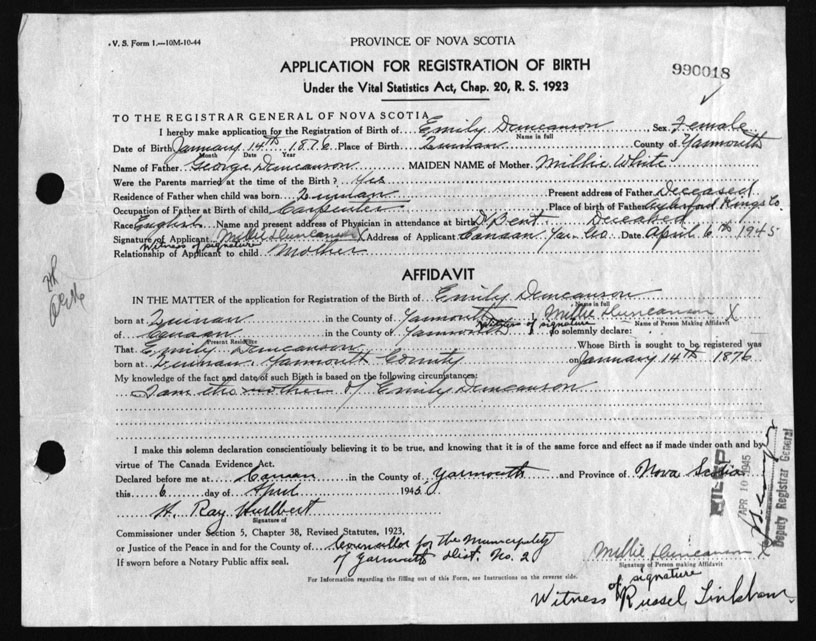 V. S. Form 1.—10M-10-44
PROVINCE OF NOVA SCOTIA
APPLICATION FOR REGISTRATION OF BIRTH
990018
Under the Vital Statistics Act, Chap. 20, R. S. 1923
TO THE REGISTRAR GENERAL OF NOVA SCOTIA
I hereby make application for the Registration of Birth of Emily Duncanson Sex Female
Name in full
Date of Birth January 14th 1876 Place of Birth Quinan County of Yarmouth
Month Date Year
Name of Father George Duncanson MAIDEN NAME of Mother Millie White
Were the Parents married at the time of the Birth? Yes
Residence of Father when child was born Quinan Present address of Father Deceased
Occupation of Father at Birth of child Carpenter Place of birth of Father Kings Co.
Race English Name and present address of Physician in attendance at birth Dr Bent Deceased
Signature of Applicant Millie Duncanson X Address of Applicant Canaan Yar. Co. Date April 6th 1945
Witness of signature
Relationship of Applicant to child Mother
AFFIDAVIT
IN THE MATTER of the application for Registration of the Birth of Emily Duncanson
Name in full
born at Quinan in the County of Yarmouth Millie Duncanson X
Witness of signature Name of Person Making Affidavit
of Canaan in the County of Yarmouth to solemnly declare:
Present Residence
That Emily Duncanson Whose Birth is sought to be registered was
born at Quinan Yarmouth County on January 14th 1876
My knowledge of the fact and date of such Birth is based on the following circumstances:
I am the mother of Emily Duncanson
I make this solemn declaration conscientiously believing it to be true, and knowing that it is of the same force and effect as if made under oath and by
virtue of The Canada Evidence Act.
Declared before me at Canaan in the County of Yarmouth and Province of Nova Scotia
this 6 day of April 1945
H. Ray Hurlbert
Signature of
Commissioner under Section 5, Chapter 38, Revised Statutes, 1923,
or Justice of the Peace in and for the County of Councillor for the Municipality
of Yarmouth Dist. No. 2
If sworn before a Notary Public affix seal.
Millie Duncanson X
Signature of Person making Affidavit
For Information regarding the filling out of this Form, see Instructions on the reverse side.
Witness of signature
Russel
APR 10 1945
Deputy Registrar General